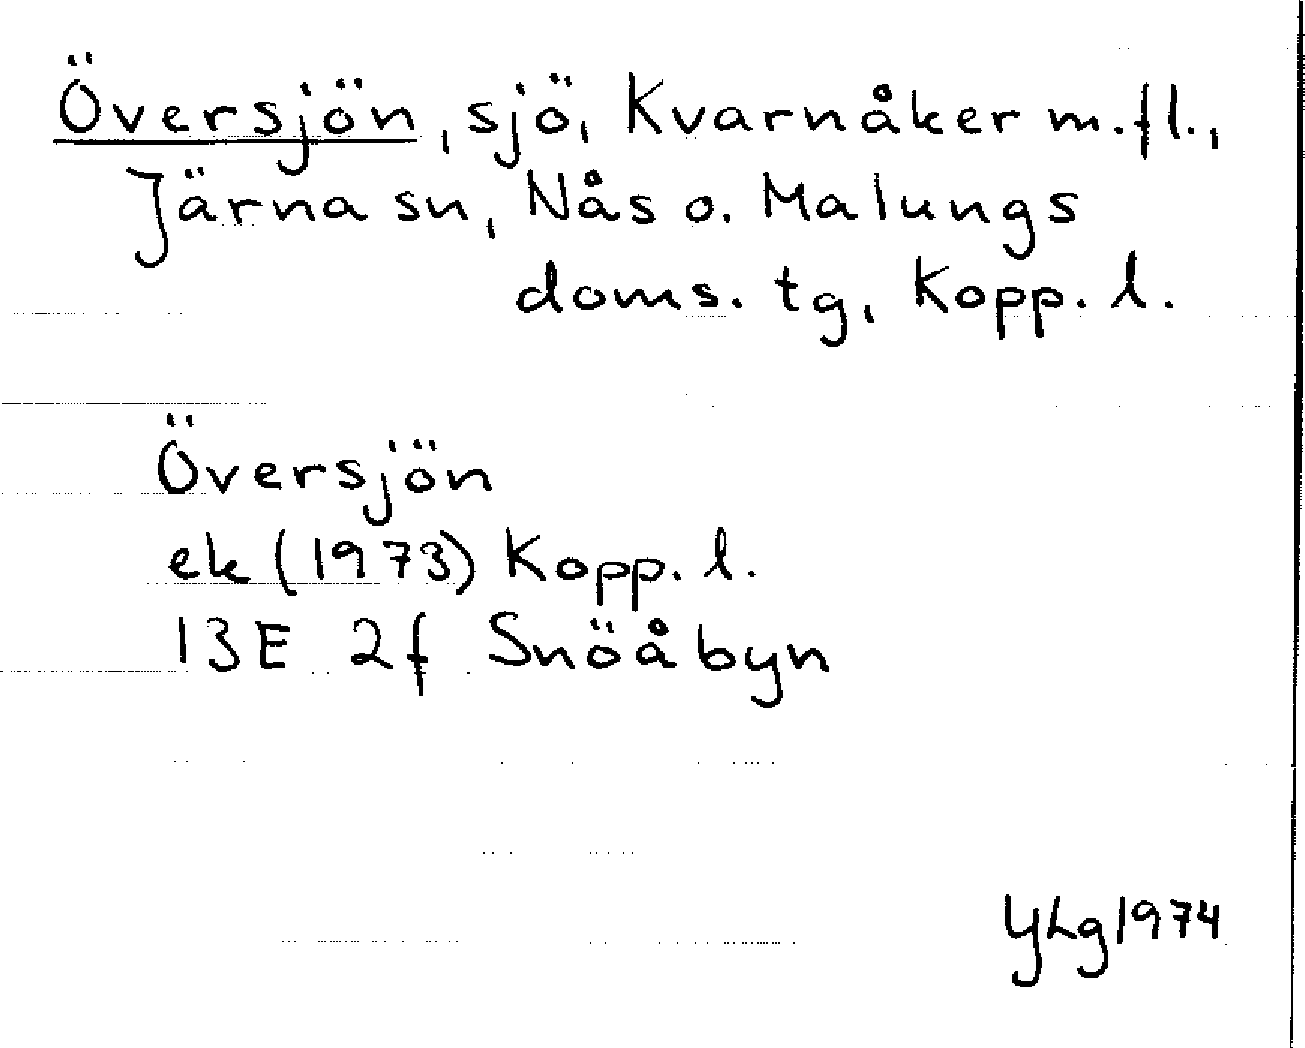 Översjön, sjö, Kvarnåker m.fl.,
Järna sn, Nås o. Malungs
doms. tg, Kopp. l.
Översjön
ek (1973) Kopp. l.
13E 2f Snöåbyn
YLg 1974